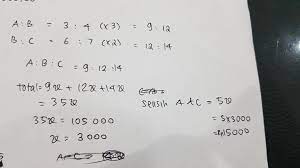 A : B = 3 : 4 (x3) = 9 : 12
B : C = 6 : 7 (x2) = 12 : 14
A : B : C = 9 : 12 : 14
total = 9x + 12x + 14x
= 35x
35x = 105 000
x = 3 000
selisih A & C = 5x
= 5 x 3000
= 15000